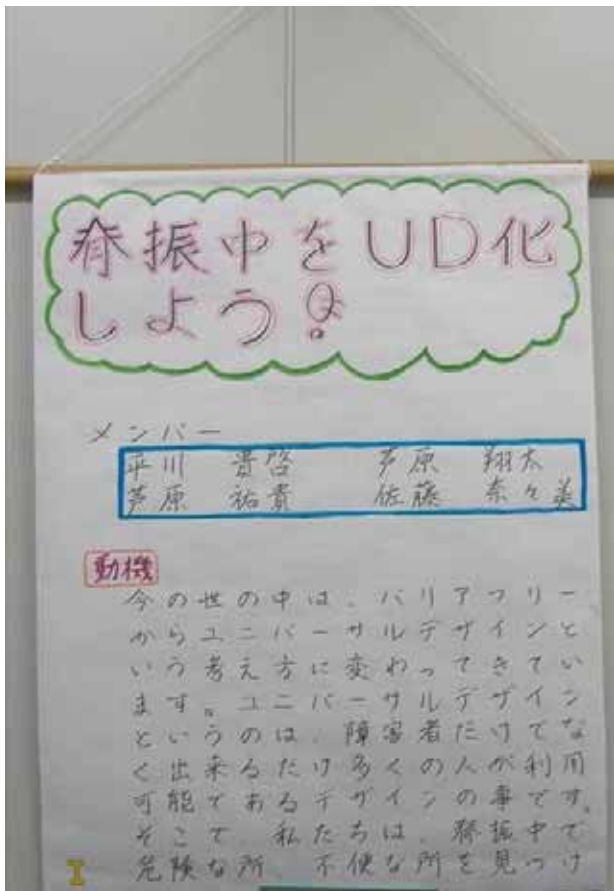 脊振中をUD化
しよう!
メンバー
平川 貴啓 芦原 翔太
芦原 祐貴 佐藤 奈々美
動機
今の世の中は、バリアフリー
からユニバーサルデザインと
いう考え方に変わってきてい
ます。ユニバーサルデザイン
というのは、障害者だけでな
く出来るだけ多くの人が利用
可能であるデザインの事です。
そこで 私たちは、脊振中で
危険な所、不便な所を見つけ
I